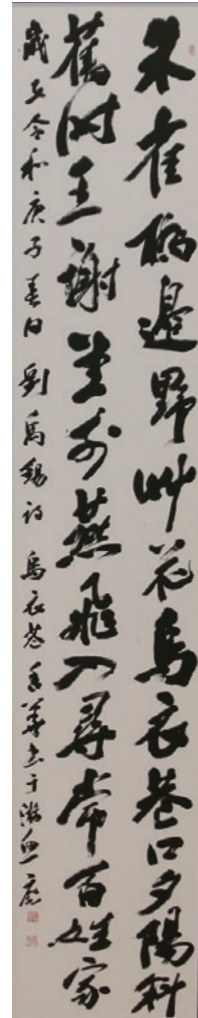 朱雀橋邊野艸花烏衣巷口夕陽斜
舊时王謝堂前燕飛入尋常百姓家
歲在令和庚子春日 劉禹錫詩 烏衣巷 華书于